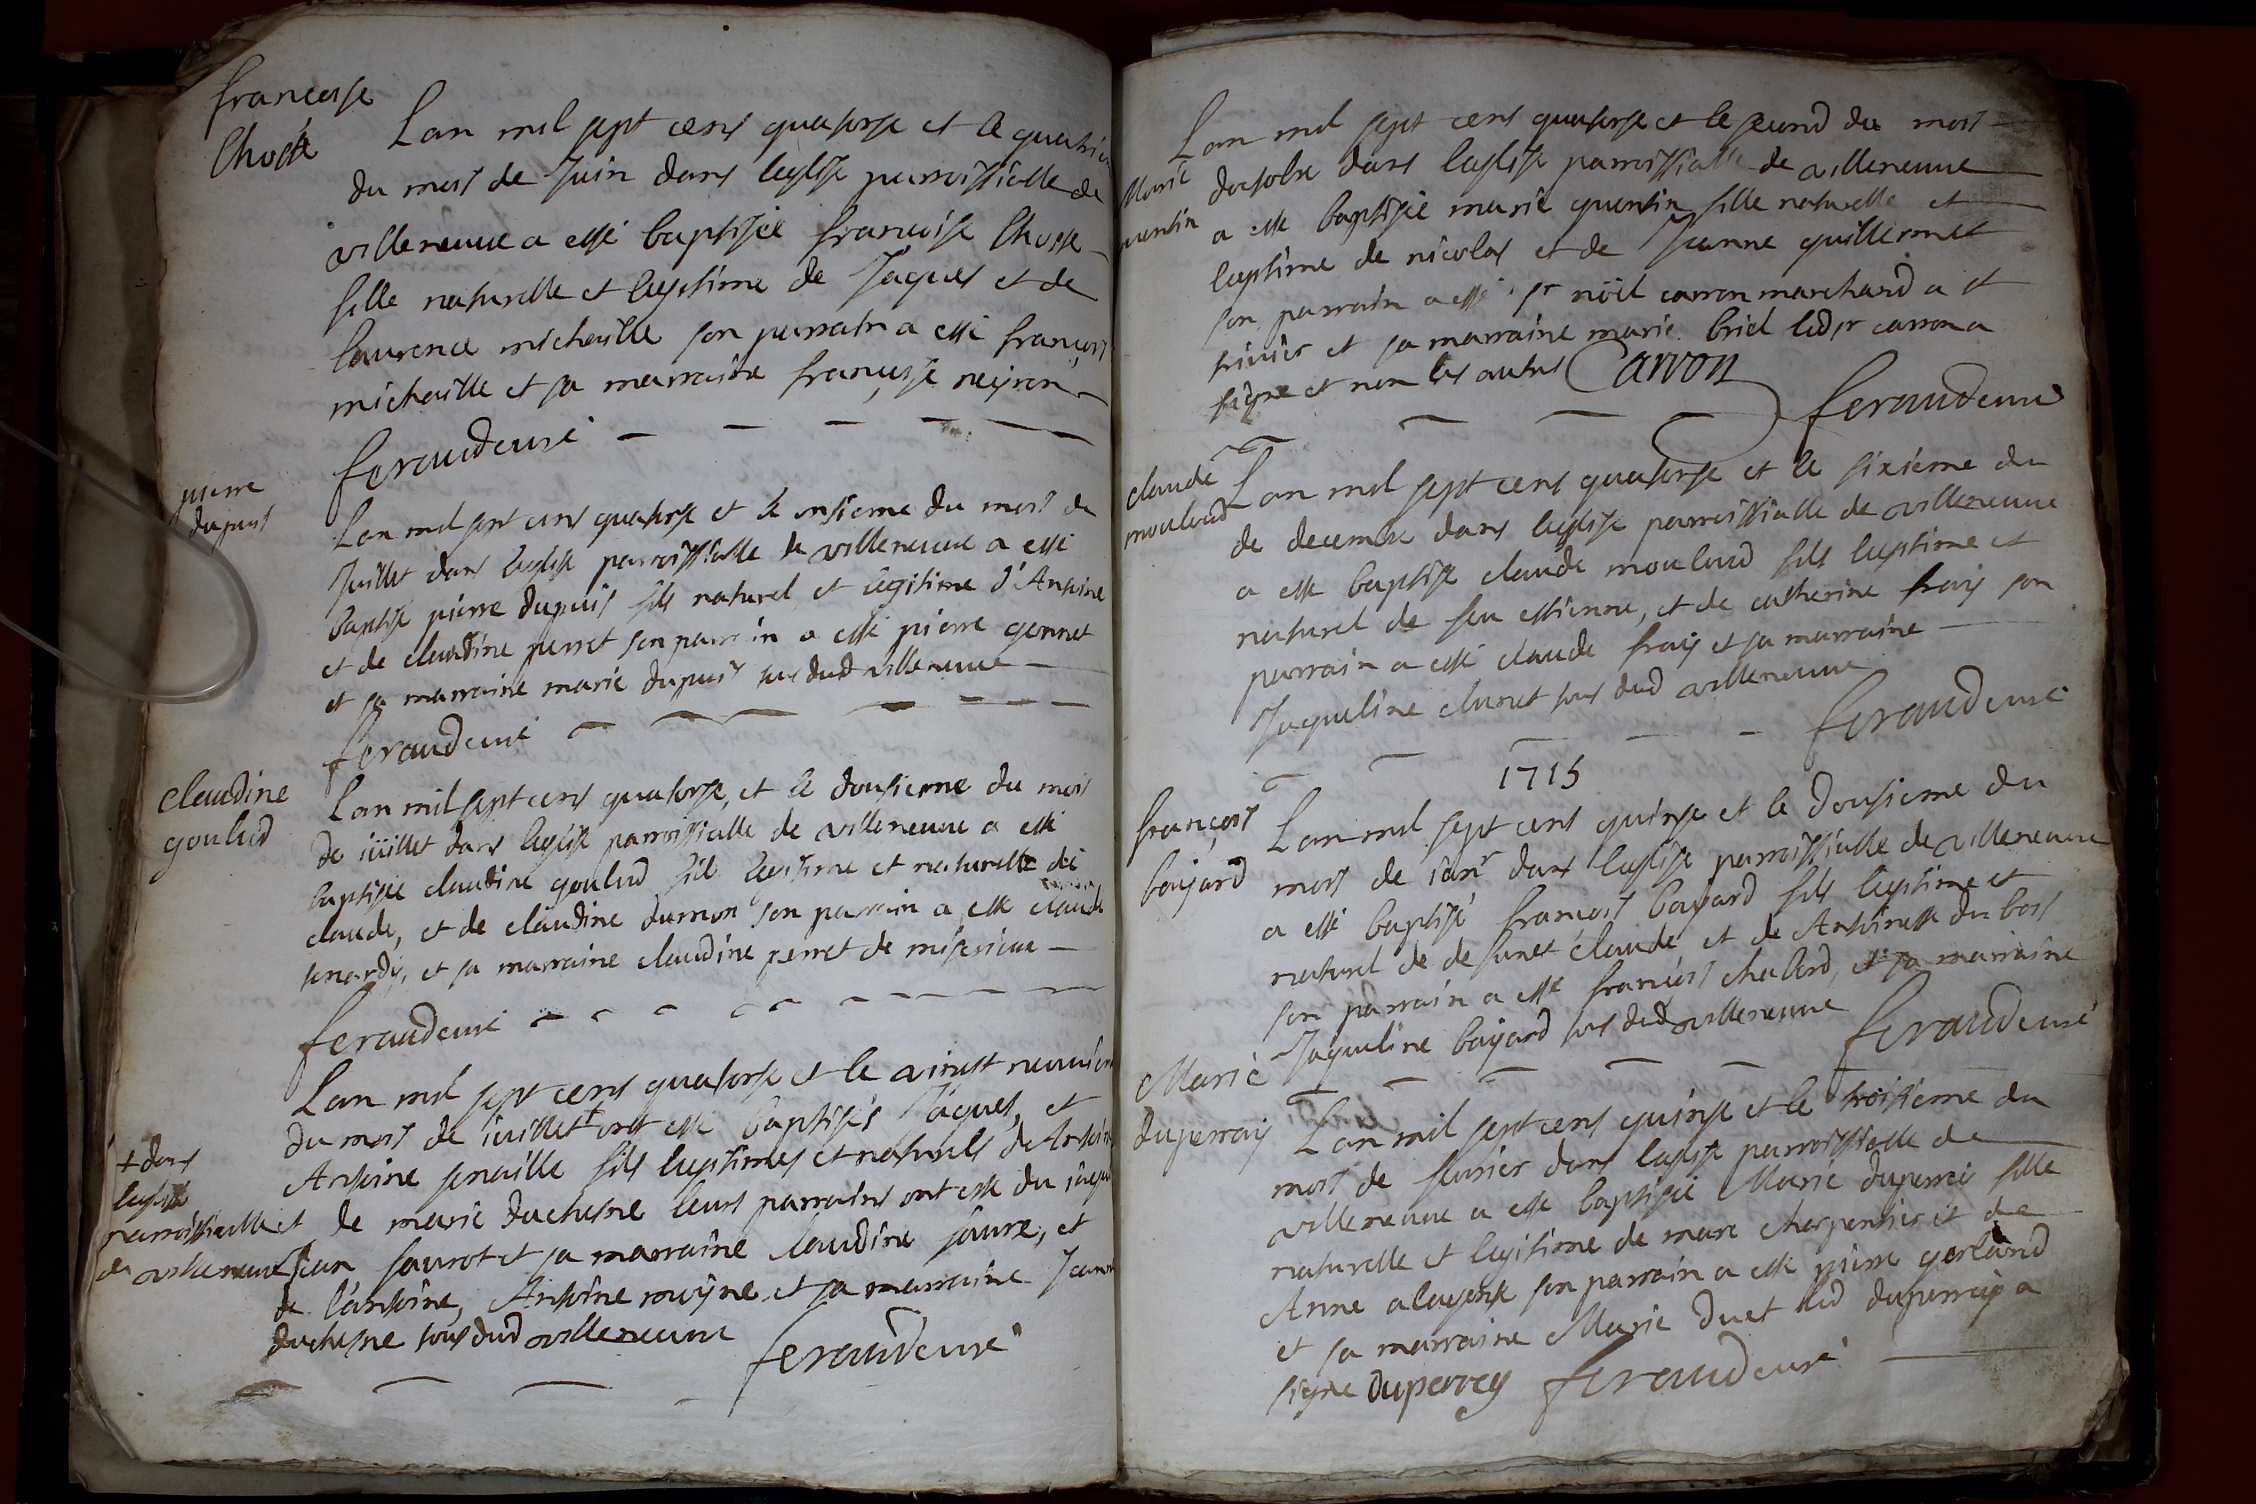 francoise
Chosse
Lan mil sept cens quatorse et le quatrie
du mois de Juin dans leglise parroissialle de
villeneuve a esté baptisée francoise Chosse
fille naturelle et legitime de Jaques et de
laurence michaille son parrain a esté françois
michaille et sa marraine françoise neyron
feraud curé
pierre
dupuis
Lan mil sept cens quatorse et le onsieme du mois de
Juillet dans leglise parroissialle de villeneuve a esté
baptise pierre dupuis fils naturel et legitime d'Antoine
et de claudine perret son parrain a esté pierre gonnet
et sa marraine marie dupuis tous dud villeneuve
feraud curé
claudine
goulud
Lan mil sept cens quatorse, et le dousieme du mois
de iuillet dans leglise parroissialle de villeneuve a esté
baptisée claudine goulud fille legitime et naturelle de
claude, et de claudine dumon son parrain a esté claude
et sa marraine claudine perret de miserieux
feraud curé
Lan mil sept cens quatorse et le vingt neuvieme
du mois de iuillet + ont esté baptisés Jaques, et
Antoine fils legitimes et naturels de Antoine
+ dans
leglise
parroissialle
de villeneuve
et de marie duchesne leurs parrains ont esté du iaques
Jean sauvot et sa marraine claudine faure, et
de l'antoine, Antoine et sa marraine Jeanne
duchesne tous dud villeneuve
feraud curé
Marie
quentin
Lan mil sept cens quatorse et le second du mois
doctobre dans leglise parroissialle de villeneuve
a esté baptisée marie quentin fille naturelle et
legitime de nicolas et de Jeanne guillermet
son parrain a esté sr noël carron marchand a st
trivier et sa marraine marie briel led sr carron a
signe et non les autres Carron
feraud curé
claude
mouloud
Lan mil sept cens quatorse et le sixieme du
de decembre dans leglise parroissialle de villeneuve
a esté baptise claude mouloud fils legitime et
naturel de feu estienne, et de catherine frais son
parrain a esté claude frais et sa marraine
Jaqueline clunet tous dud villeneuve
feraud curé
1715
françois
bayard
Lan mil sept cens quinse et le dousieme du
mois de ianr dans leglise parroissialle de villeneuve
a esté baptisé francois bayard fils legitime et
naturel de defunct claude et de Antoinette du bois
son parrain a esté francois chalard, et sa marraine
Jaqueline bayard tous dud villeneuve
feraud curé
Marie
duperray
Lan mil sept cens quinse et le troisieme du
mois de fevrier dans leglise parroissialle de
villeneuve a esté baptisée Marie duperrei fille
naturelle et legitime de marc charpentier et de
Anne son parrain a esté pierre gerland
et sa marraine Marie Duet led duperray a
signe duperrey feraud curé